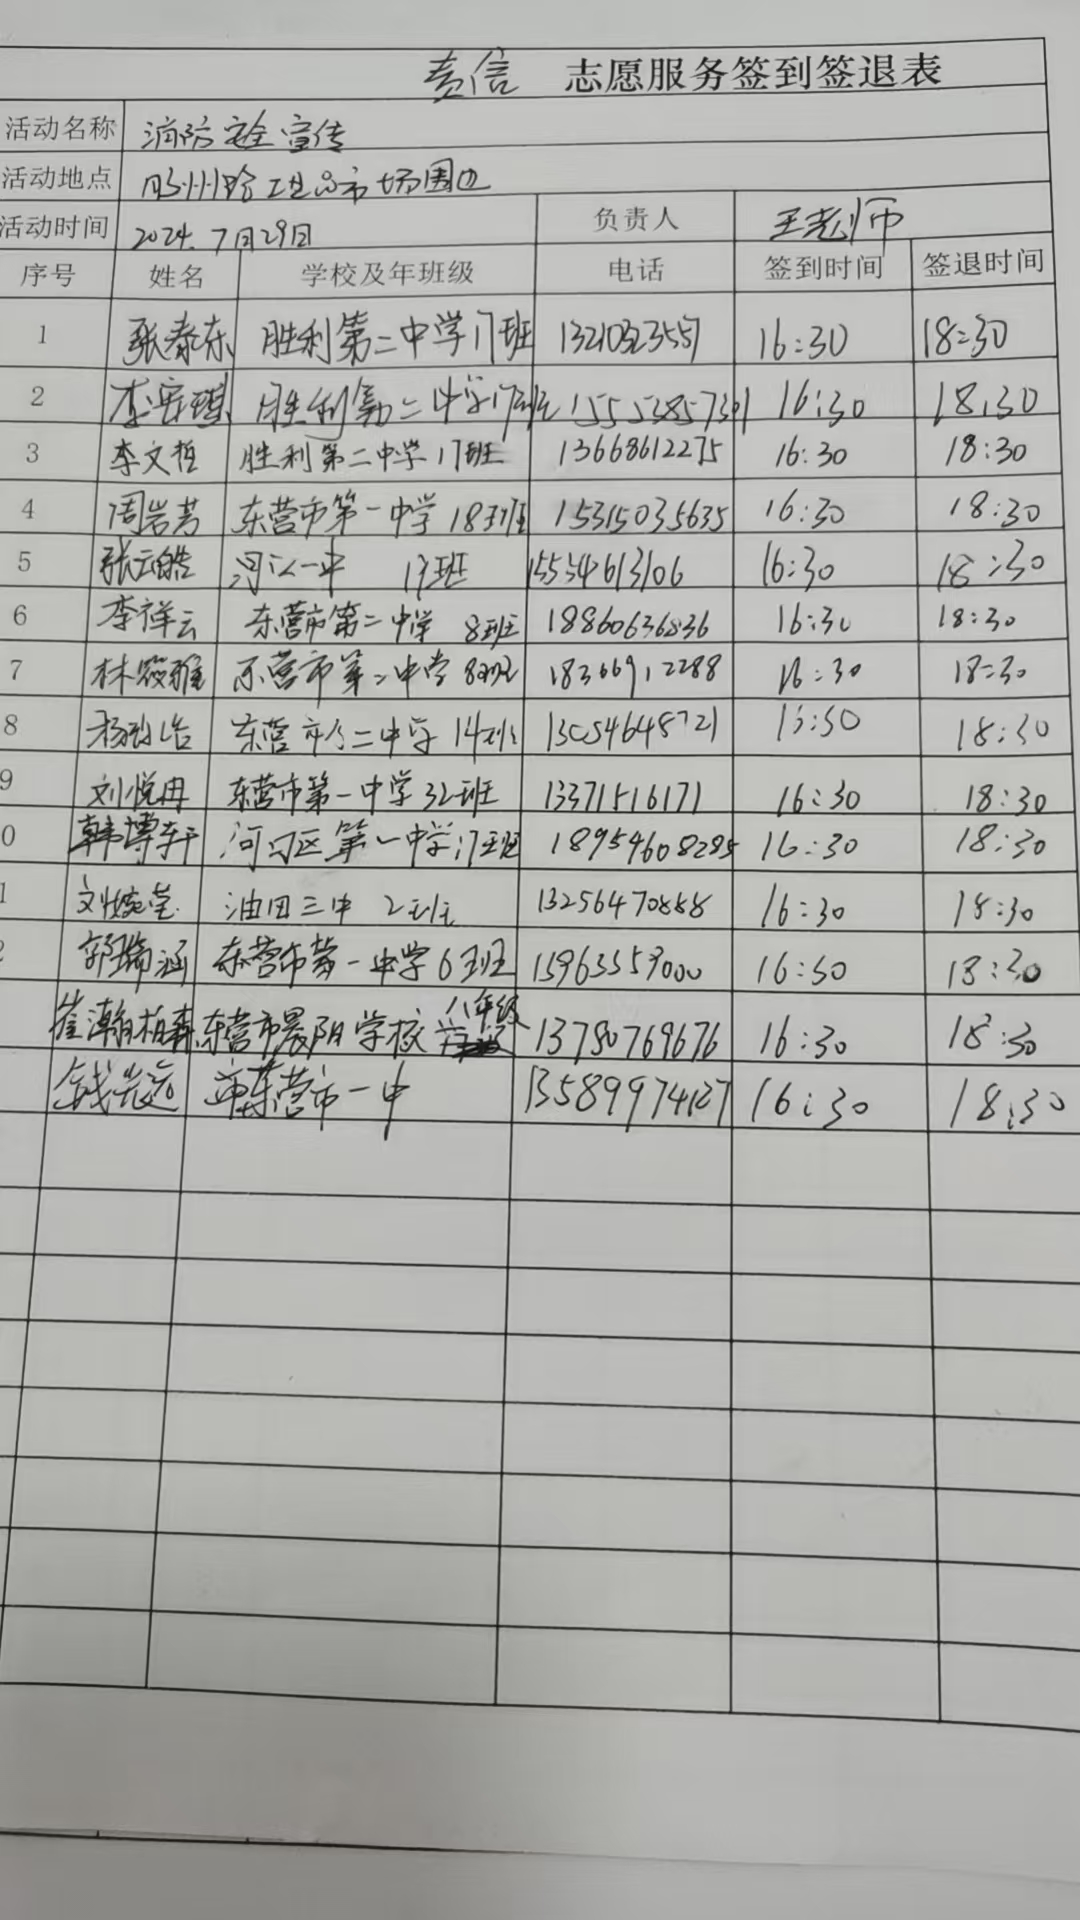 志愿服务签到签退表
活动名称 消防安全宣传
活动地点 市场周边
活动时间 2024.7月29日 负责人 王老师
序号 姓名 学校及年班级 电话 签到时间 签退时间
1 张泰东 胜利第二中学17班 13210323557 16:30 18:30
2 李安琪 胜利第二中学17班 15553857301 16:30 18:30
3 李文哲 胜利第二中学17班 13668612275 16:30 18:30
4 周岩芳 东营市第一中学18班 15315035635 16:30 18:30
5 张云皓 河口一中 17班 15554613106 16:30 18:30
6 李祥云 东营市第二中学 8班 18860636836 16:30 18:30
7 林筱雅 东营市第二中学 8班 18366912288 16:30 18:30
8 东营市第二中学 14班 13054648721 18:30
9 刘悦冉 东营市第一中学32班 13371516171 16:30 18:30
0 韩博轩 河口区第一中学17班 18954608285 16:30 18:30
1 刘婉莹 油田三中 2班 13256470888 16:30 18:30
2 郭瑞涵 东营市第一中学6班 15963559000 16:30 18:30
崔瀚柏森 东营市晨阳学校 八年级 13780769676 16:30 18:30
钱 东营市一中 13589974127 16:30 18:30